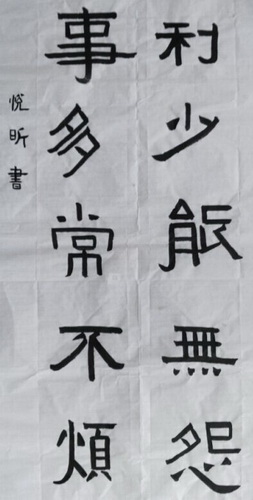 利少能無怨
事多常不煩
悦昕書